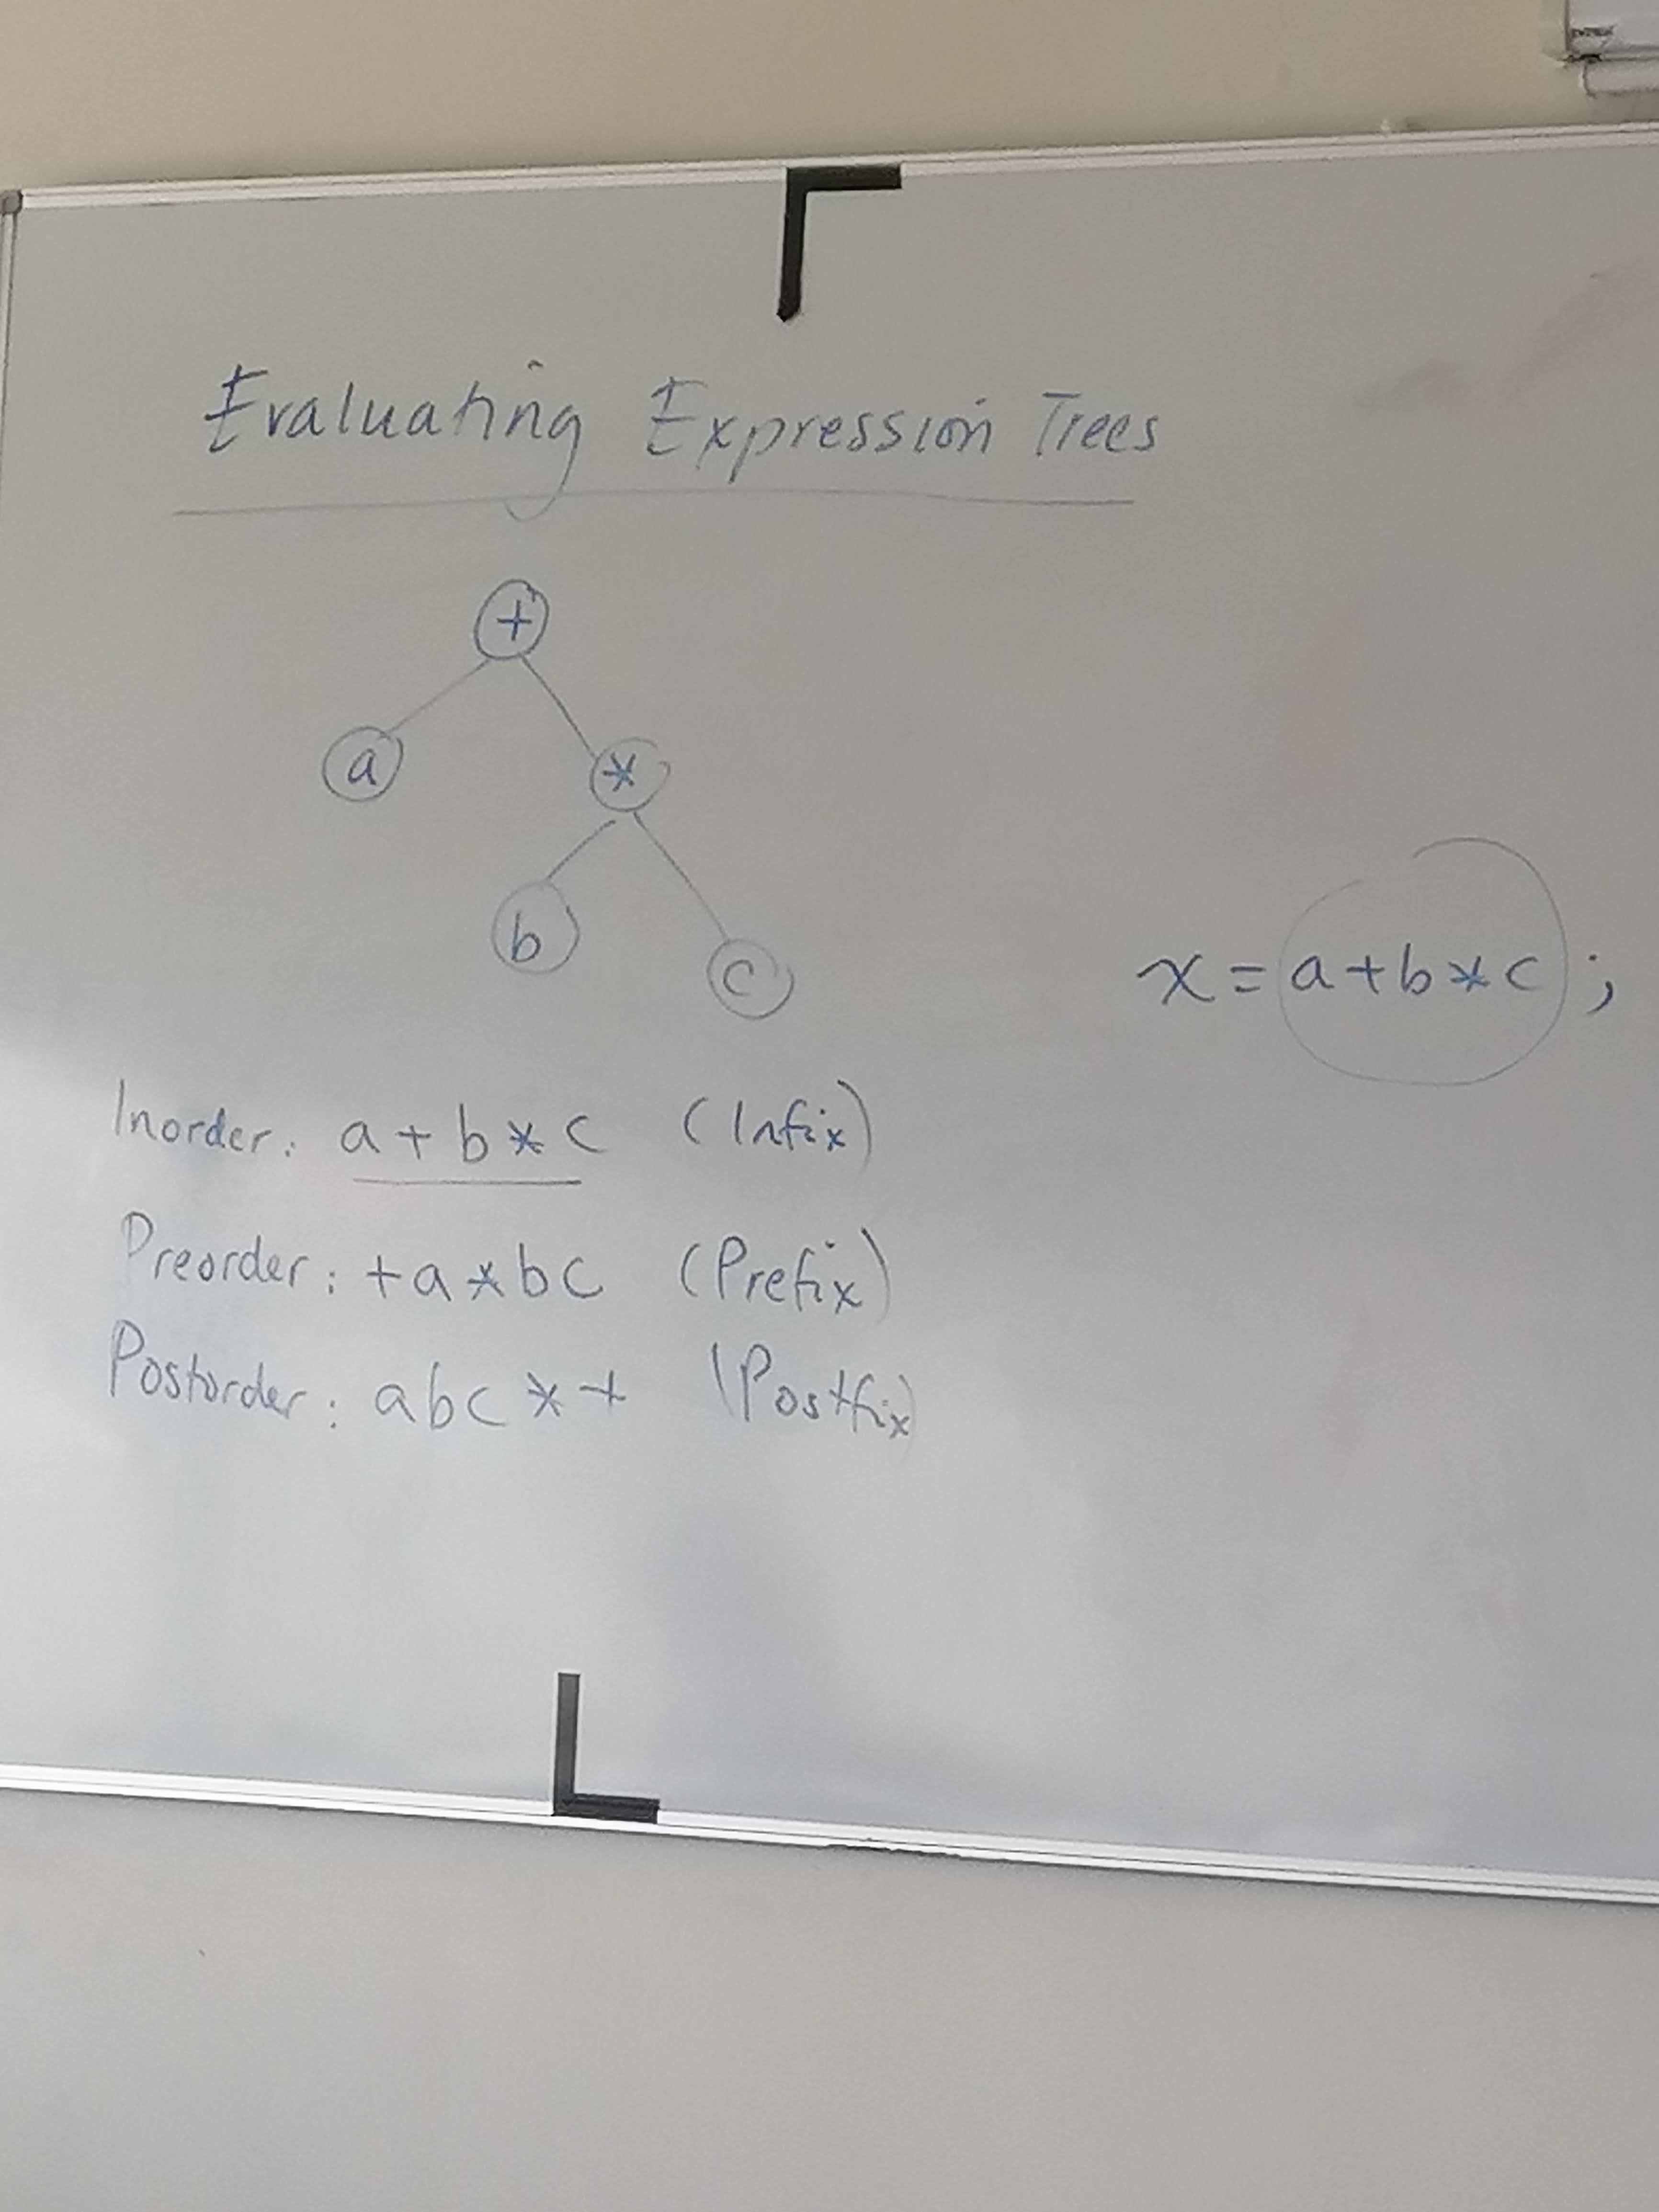 Evaluating Expression Trees
+
a *
b c
x = a + b * c ;
Inorder: a + b * c (Infix)
Preorder: + a * b c (Prefix)
Postorder: a b c * + (Postfix)